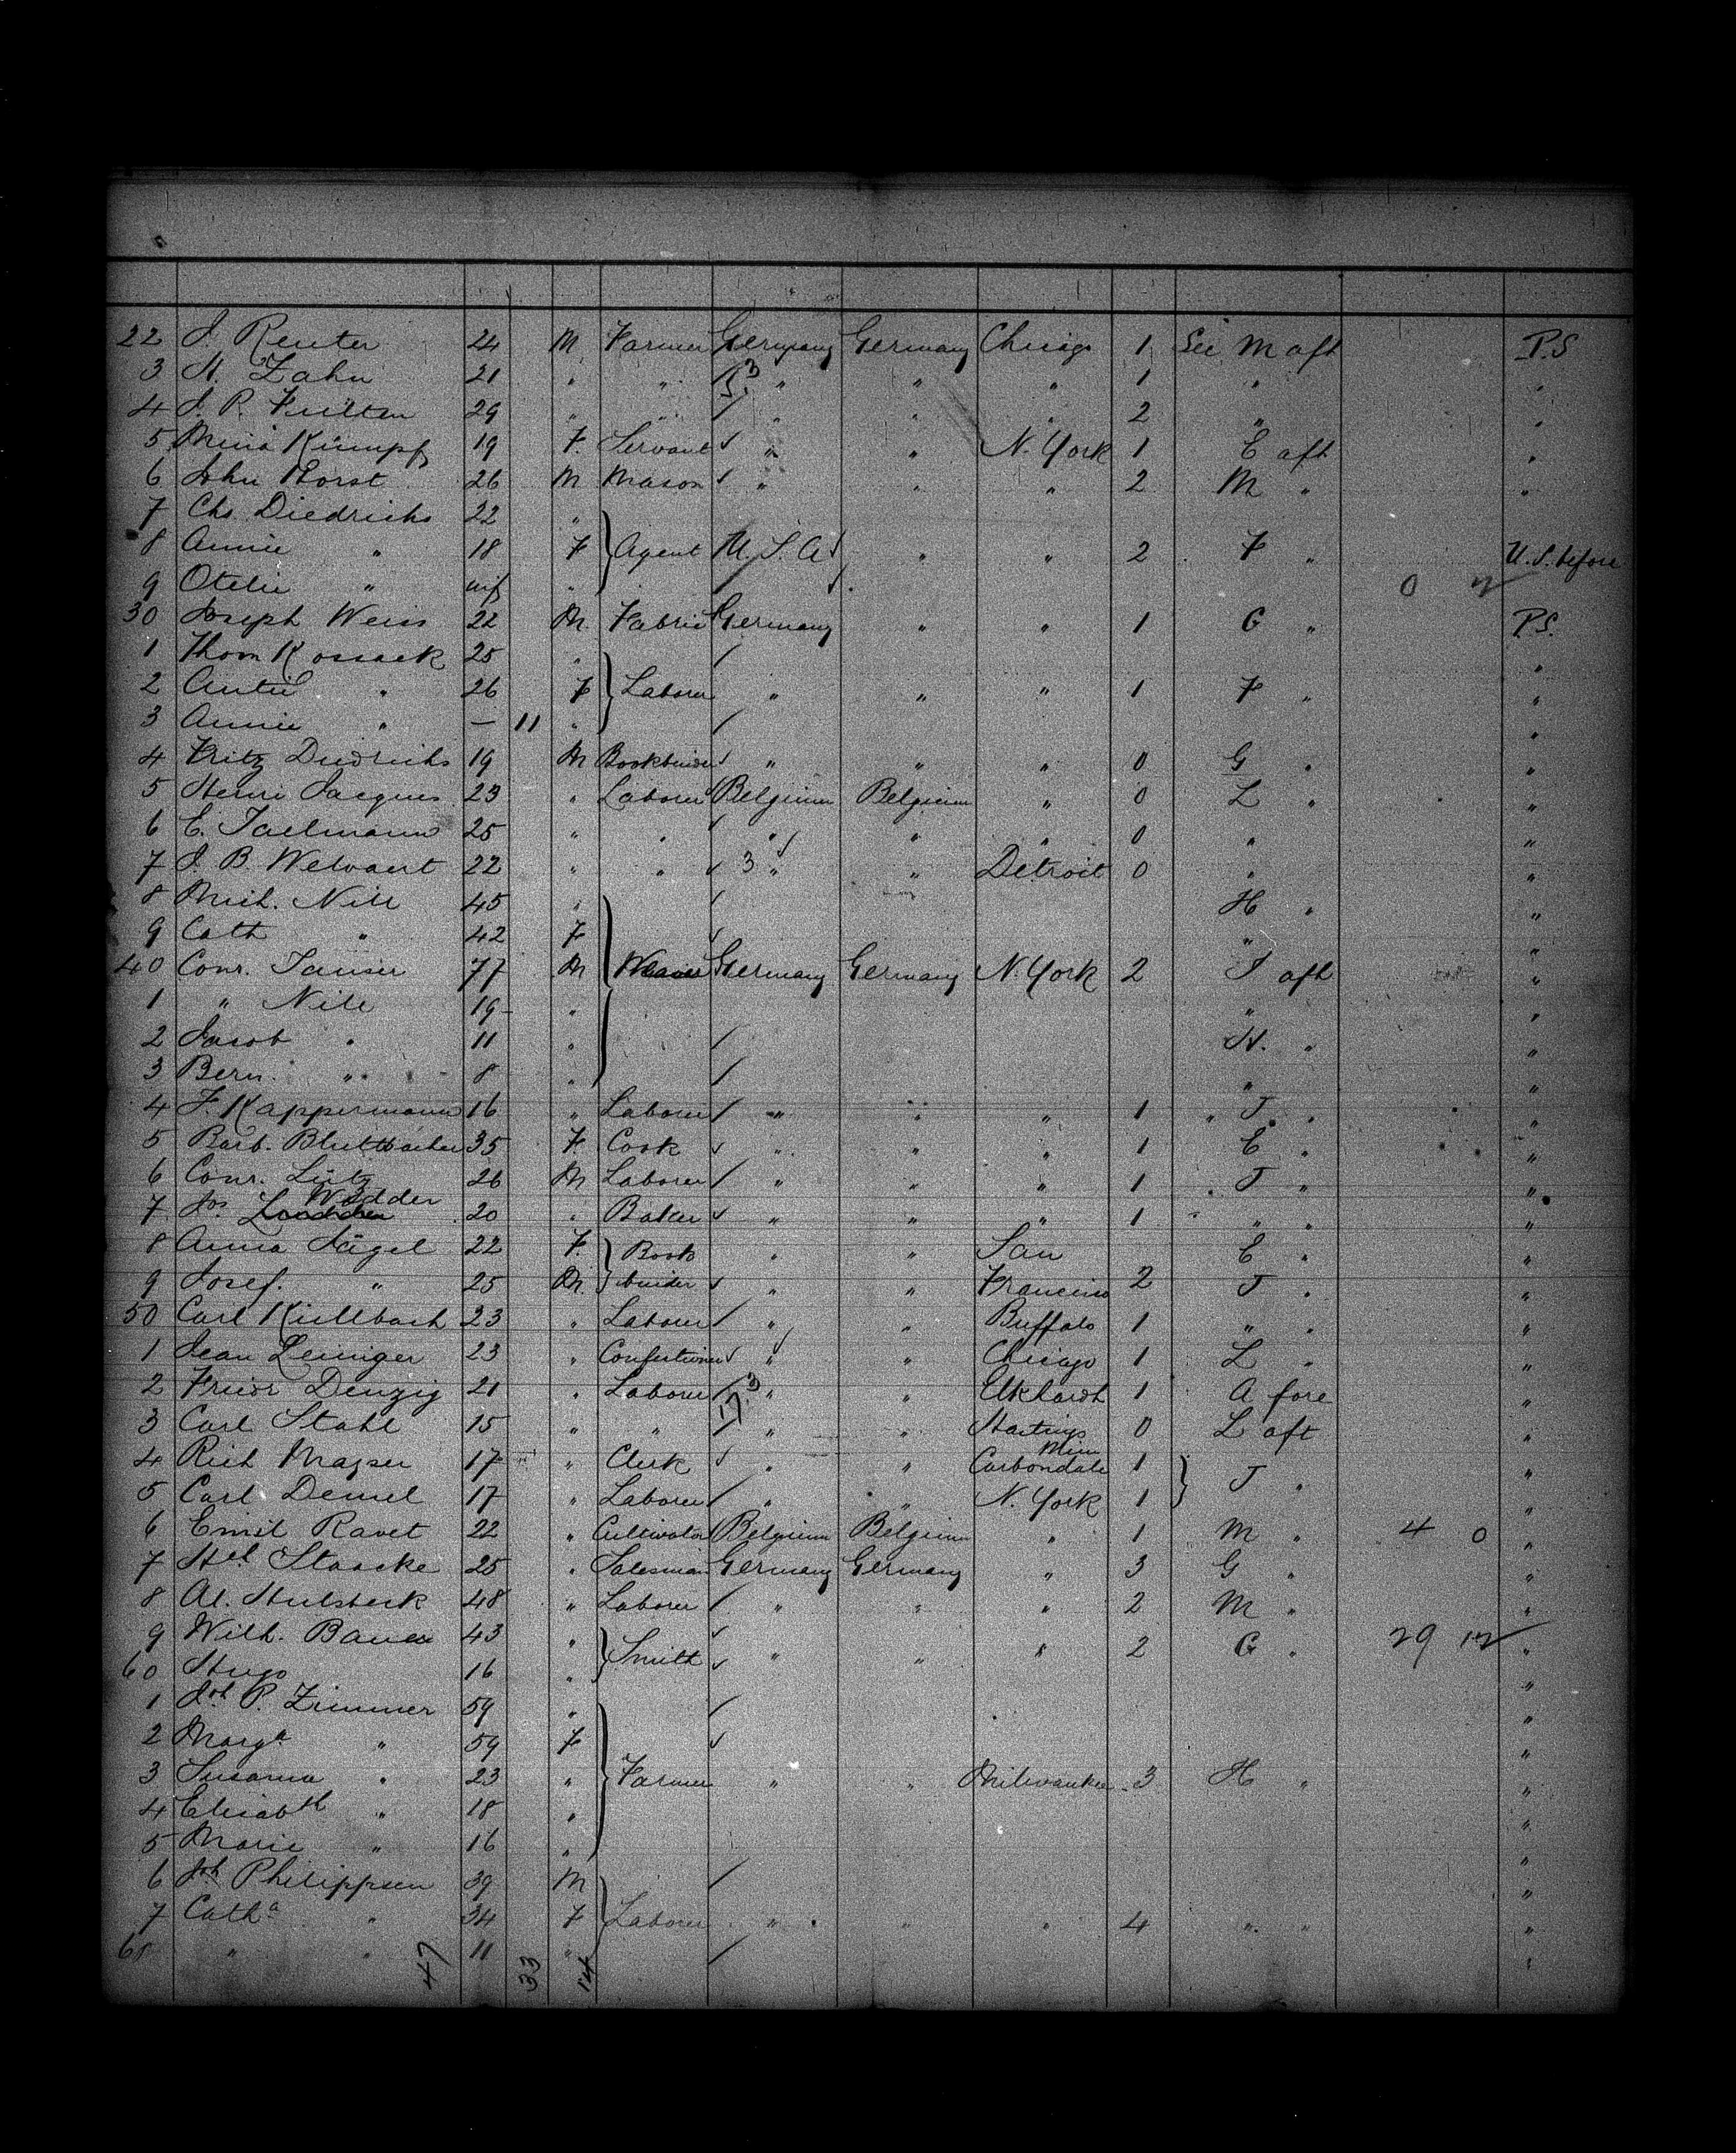 22 J. Reuter 24 M Farmer Germany Germany Chicago 1 See M aft P.S
3 M. Zahn 21 " " " " " 1 " "
4 J. P. Fulten 29 " " " " " 2 " "
5 Mina Kumpf 19 F. Servant " " N. York 1 E aft "
6 John Horst 26 M Mason " " " 2 M " "
7 Chs. Diedrichs 22 "
8 Annie " 18 F Agent U. S. A " " 2 F " U.S. before
9 Otelie " inf "
0
30 Joseph Weiss 22 M. Fabric Germany " " 1 G " P.S.
1 Thom Kossack 25 " "
2 " 26 F Laborer " " " 1 F " "
3 Annie " — 11 " "
4 Fritz Diedrichs 19 M Bookbinder " " " 0 G " "
5 Henri Jacques 23 " Laborer Belgium Belgium " 0 L " "
6 E. Taelmann 25 " " " " " 0 " "
7 J. B. Welvaert 22 " " 3 " " Detroit 0 " "
8 Mich. Nill 45 " H " "
9 Cath " 42 F " "
40 Conr. 77 M Weaver Germany Germany N. York 2 J aft "
1 " Nill 19 " " "
2 Jacob " 11 " H. " "
3 Bern. " 8 " " "
4 F. Kappermann 16 " Laborer " " " 1 " J. " "
5 Barb. 35 F Cook " " " 1 E " "
6 Conr. Lutz 26 M Laborer " " " 1 J " "
Wedder
7 Jos 20 " Baker " " " 1 " " "
8 Anna Nägel 22 F. Book " " San E " "
9 Josef. " 25 M. binder " " Francisco 2 J " "
50 Carl Kiellbach 23 " Laborer " " Buffalo 1 " " "
1 Jean Leiniger 23 " Confectioner " " Chicago 1 L " "
2 Friedr Denzig 21 " Laborer " " Elkhardt 1 A fore "
3 Carl Stahl 15 " " " " Hastings 0 L aft "
Minn
4 Rich Magser 17 " Clerk " " Carbondale 1 J " "
5 Carl Demel 17 " Laborer " " N. York 1 "
6 Emil Ravet 22 " Cultivator Belgium Belgium " 1 M " 4 0 "
7 Hel Staacke 25 " Salesman Germany Germany " 3 G " "
8 Al. Hulsbeck 48 " Laborer " " " 2 M " "
9 Wilh. Bauer 43 " Smith " " " 2 G " 29 12 "
60 Hugo 16 " "
1 Joh P. Zimmer 59 " "
2 Marga " 59 F "
3 Susanna " 23 " Farmer " " Milwaukee 3 H " "
4 Elisabth " 18 " "
5 Marie " 16 " "
6 Joh Philippsen 39 M "
7 Catha " 34 F Laborer " " " 4 " " "
68 " " 11 " "
47 33 14